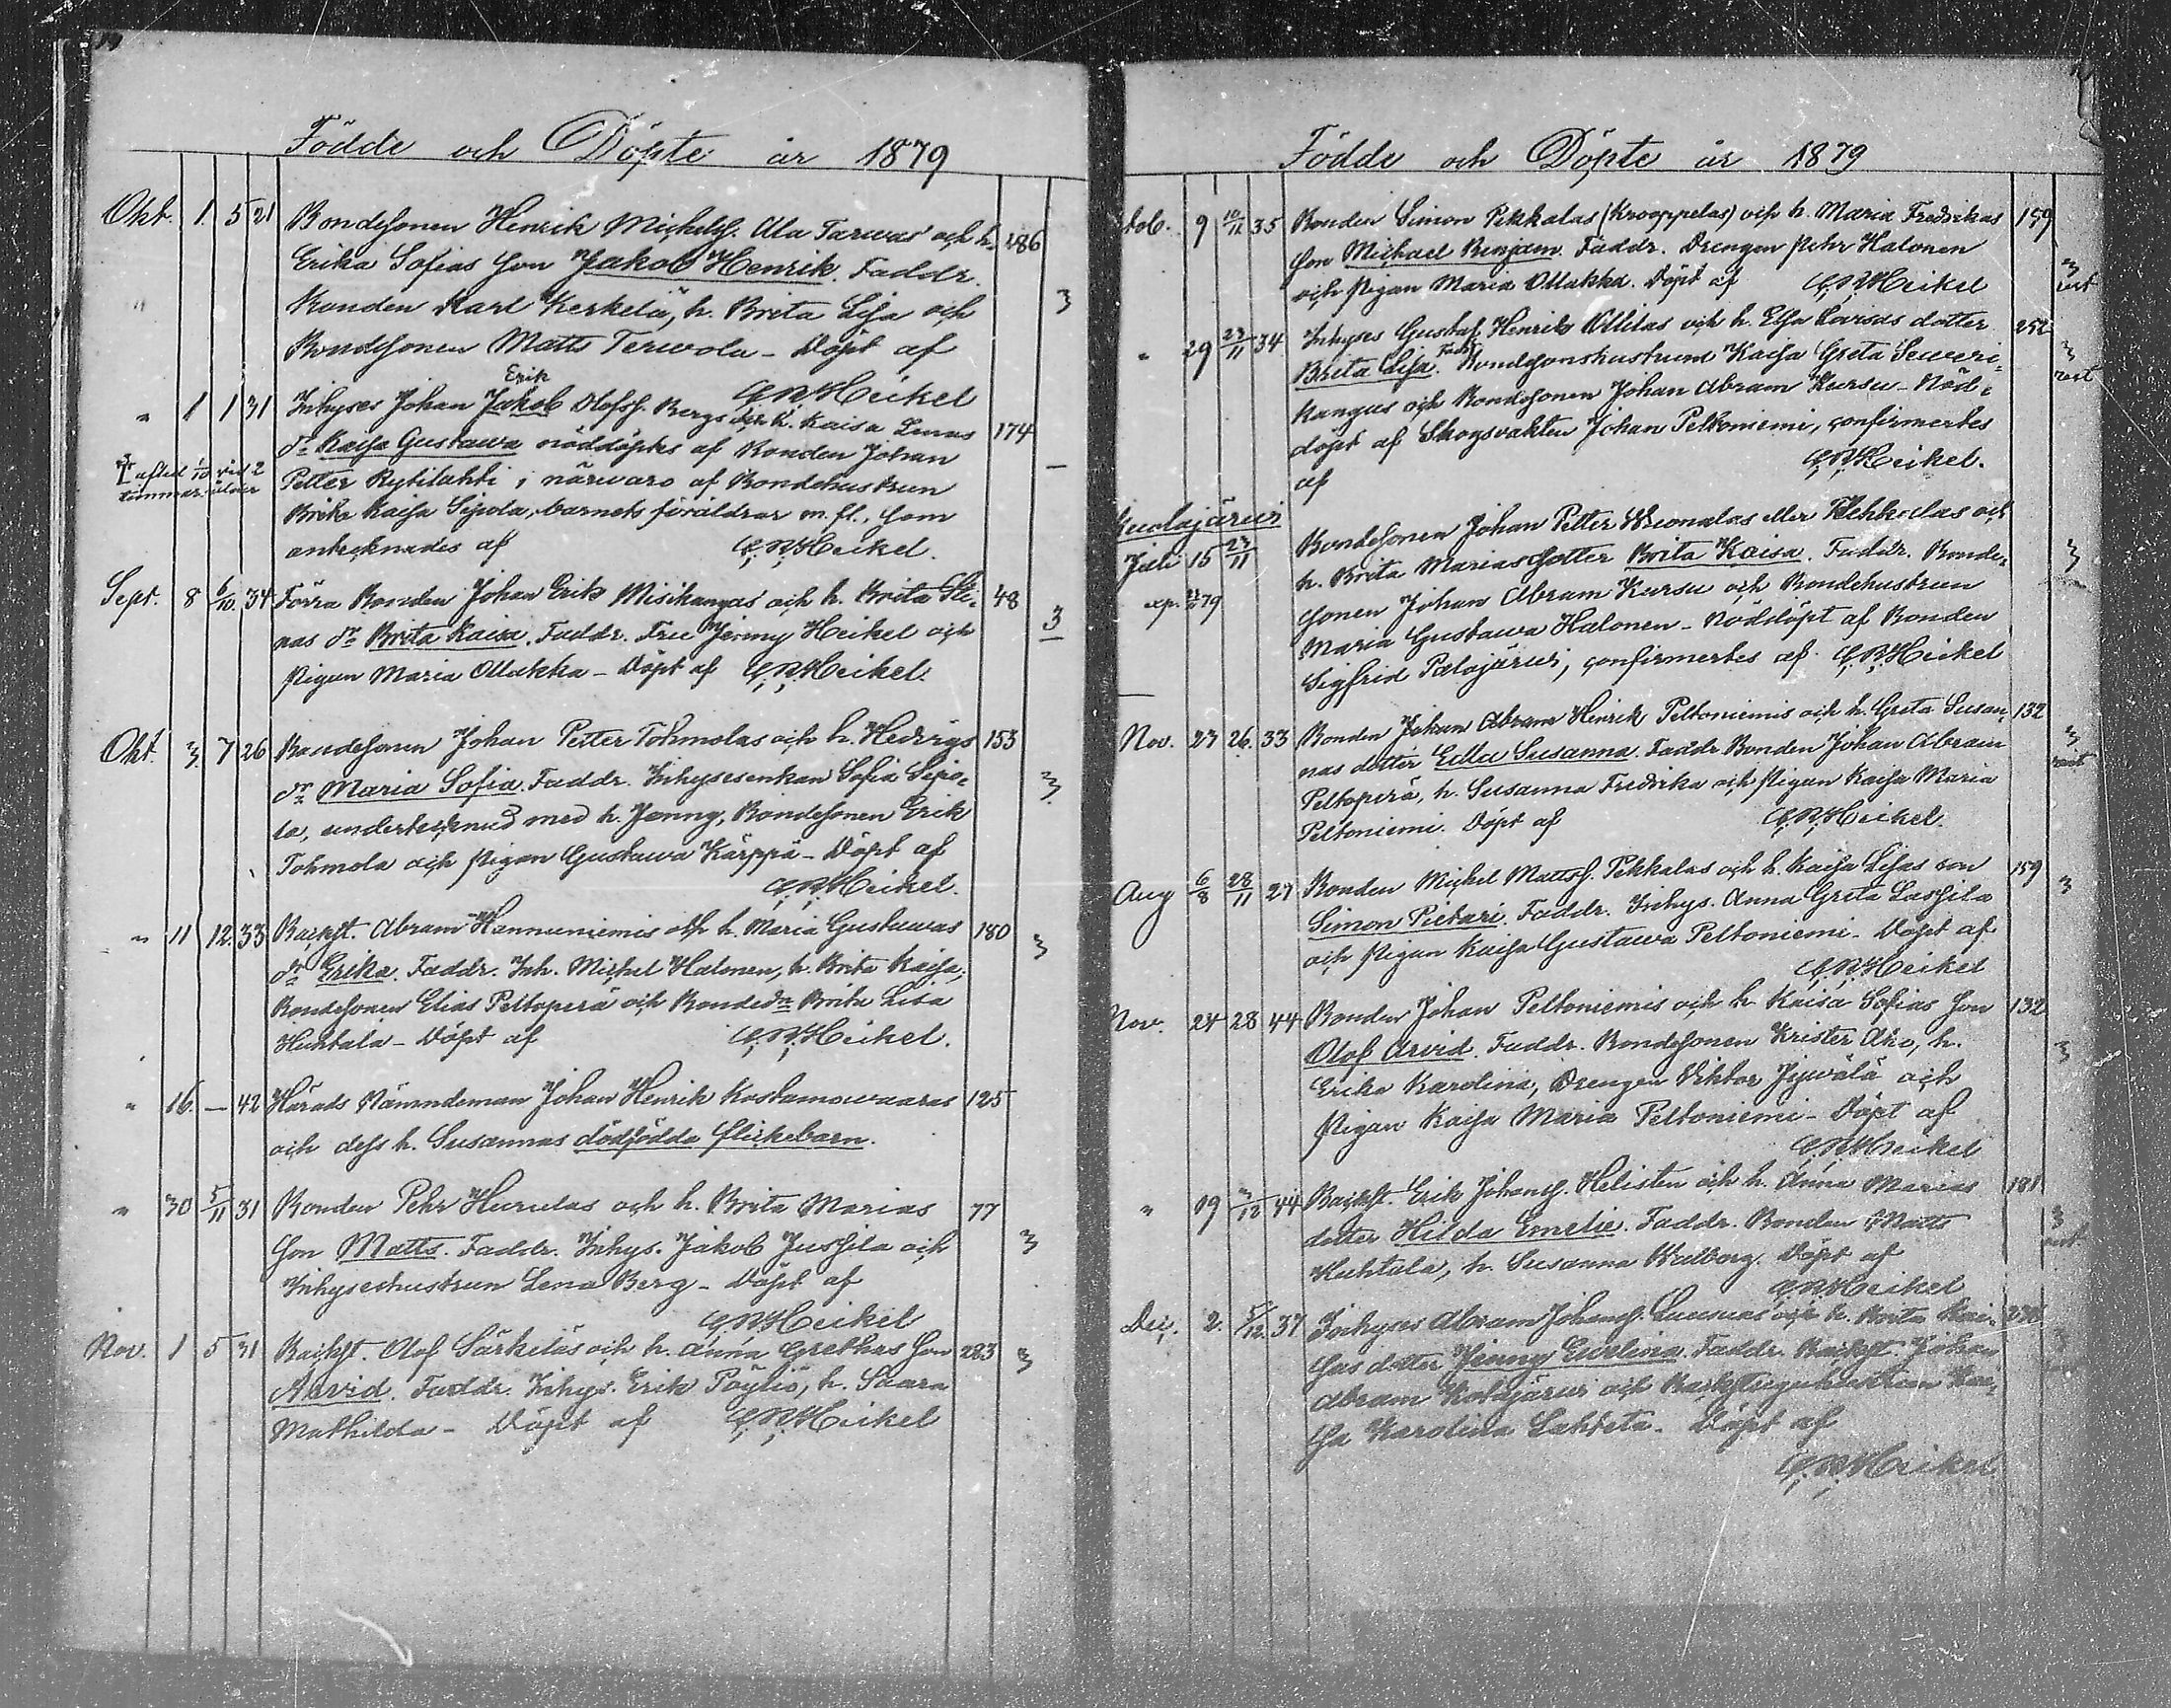 Födde och Döpte år 1879
Okt. 1. 5 21 Bondesonen Henrik Michelss. Ala Tarwas och h. 286
Erika Sofias son Jakob Henrik. Faddr.
Bonden Karl Kerkelä, h. Brita Lisa och 3
Bondesonen Matts Terwola - Döpt af
C.R. Heikel
Erik
" 1 1 31 Inhyses Johan Jakob Olofss. Bergs och h. Kaisa Lenas 174
dr. Kaisa Gustawa nöddöptes af Bonden Johan
afled 1/10 vid 2 Petter Rytilahti i närwaro af Bondehustrun —
timmar ålder
Brita Kaisa Sipola, barnets föräldrar m. fl., som
antecknades af C.R. Heikel.
Sept. 8 6/10. 34 Förra Bonden Johan Erik Misikangas och h. Brita Ste- 48
nas dr. Brita Kaisa. Faddr. Fru Jenny Heikel och 3
Pigan Maria Ollakka - Döpt af C.R. Heikel.
Okt. 3. 7 26 Bondesonen Johan Petter Tohmolas och h. Hedvigs 153
dr. Maria Sofia. Faddr. Inhysesenkan Sofia Sipo- 3.
la, undertecknad med h. Jenny, Bondesonen Erik
Tohmola och Pigan Gustawa Kärppä - Döpt af
C.R. Heikel.
" 11 12. 33 Backst. Abram Hannuniemis och h. Maria Gustawas 180
dr. Erika. Faddr. Inh. Michel Halonen, h. Brita Kaisa, 3
Bondesonen Elias Peltoperä och Bondedn. Brita Lisa
Huhtala - Döpt af C.R. Heikel.
" 16. — 42 Härads Nämndeman Johan Henrik Kostamowaaras 125
och dess h. Susannas dödfödda flickebarn.
" 30 5/11 31 Bonden Pehr Hurulas och h. Brita Marias 77
son Matts. Faddr. Inhys. Jakob Jussila och 3
Inhyseshustrun Lena Berg - Döpt af
C.R. Heikel
Nov. 1 5 31 Backst. Olof Särkeläs och h. Anna Grethas son 283
Arvid. Faddr. Inhys. Erik Pöyliö, h. Saara 3
Mathilda - Döpt af C.R. Heikel
Födde och Döpte år 1879
9 10/11 35 Bonden Simon Pekkalas (Krooppelas) och h. Maria Fredrikas 159
son Michael Benjam. Faddr. Drengen Pehr Halonen 3
och Pigan Maria Ollakka. Döpt af C.R. Heikel rest
" 29 23/11 34 Inhyses Gustaf Henrik Ollilas och h. Elsa Lovisas dotter 252
Brita Lisa. Faddr. Bondesonshustrun Kaisa Greta Seweri- 3
rest
kangas och Bondesonen Johan Abram Kursu - Nöd-
döpt af Skogsvakten Johan Peltoniemi, confirmertes
af C.R. Heikel.
Juli 15 23/11 Bondesonen Johan Petter
h. Brita Marias dotter Brita Kaisa. Faddr. Bonde- 3
sonen Johan Abram Kursu och Bondehustrun
Maria Gustawa Halonen - Nöddöpt af Bonden
Sigfrid Palojärwi, confirmertes af C.R. Heikel
Nov. 23 26. 33 Bonden Johan Abram Henrik Peltoniemis och h. Greta Susan- 132
nas dotter Edla Susanna. Faddr. Bonden Johan Abram 3
Peltoperä, h. Susanna Fredrika och Pigan Kaisa Maria
Peltoniemi. Döpt af C.R. Heikel.
Aug 6/8 28/11 27 Bonden Michel Mattss. Pekkalas och h. Kaisa Lisas son 159
Simon Pietari. Faddr. Inhys. Anna Greta Lassila 3
och Pigan Kaisa Gustawa Peltoniemi. Döpt af
C.R. Heikel
Nov. 24 28 44 Bonden Johan Peltoniemis och h. Kaisa Sofias son 132
Olof Arvid. Faddr. Bondesonen Krister Aho, h. 3
Erika Karolina, Drengen Viktor Jywälä och
Pigan Kaisa Maria Peltoniemi - Döpt af
C.R. Heikel
" 19 44 Backst. Erik Johanss. Helisten och h. Anna Marias 181
dotter Hilda Emelie. Faddr. Bonden Matts 3
Huhtala, h. Susanna Walborg. Döpt af
C.R. Heikel
Dec. 2. 5/12. 37 Inhyses Abram Johanss. Luusuas och h. Brita Kai-
sas dotter Jenny Ewelina. Faddr. Backst. Johan
Abram Kotajärwi och Backstuguhustrun Kai-
sa Karolina Lahtela. Döpt af
C.R. Heikel